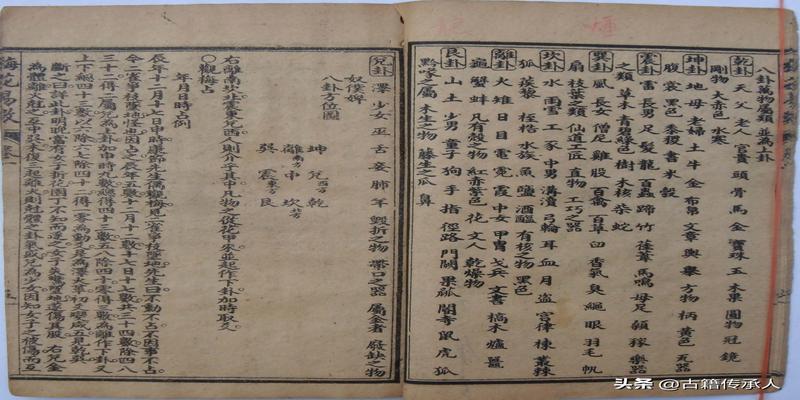 八卦萬物屬類 並為上卦
乾卦 天 父 老人 官貴 頭 骨 馬 金 寶珠 玉 木果 圜物 冠 鏡
剛物 大赤色 水寒
坤卦 地 母 老婦 土 牛 金 布帛 文章 輿 轝 方物 柄 黃色 瓦器
腹 裳 黑色 黍稷 書 米 穀
震卦 雷 長男 足 髮 龍 百蟲 蹄 竹 萑葦 馬鳴 母足 顙 稼 樂器
之類 草木 青碧綠色 樹 木核 柴 蛇
巽卦 風 長女 僧尼 雞 股 百禽 百草 臼 香氣 臭 繩 眼 羽毛 帆
扇 枝葉之類 仙道工匠 直物 工巧之器
坎卦 水 雨雪 工 豕 中男 溝瀆 弓輪 耳 血 月 盜 宮律 棟 叢棘
狐 蒺藜 桎梏 水族 魚 鹽 酒醢 有核之物 黑色
離卦 火 雉 日 目 電 霓 霞 中女 甲冑 戈兵 文書 槁木 爐 鼉
龜 蟹 蚌 凡有殼之物 紅赤紫色 花 文人 乾燥物
艮卦 山 土 少男 童子 狗 手 指 徑路 門闕 果蓏 閽寺 鼠 虎 狐
黔喙之屬 木生之物 藤生之瓜 鼻
兌卦 澤 少女 巫 舌 妾 肺 羊 毀折之物 帶口之器 屬金者 廢缺之物
奴僕婢
八卦方位圖
坤 兌 西方 乾
離 南方 中 坎
巽 震 東方 艮
右離南坎北震東兌西人則介于其中凡物之從花甲來並起作下卦加時取爻
觀梅占
年月日時占例
辰年十二月十七日申時康節先生偶觀梅見二雀爭枝墜地先生曰不動不占不因事不占
今二雀爭枝墜地怪也因占之辰年五數十二月十二數十七日十七數共三十四數除四八
三十二得二屬兌為上卦加申時九數總得四十三數五八除四十零得三數為離作下卦又
上下總四十三數以六除六七除四十二得一零為動爻是為澤火革初爻變咸互見乾巽
斷之曰詳此卦明晚當有女子折花園丁不知而逐之女子失驚墜地遂傷其股 右兌金
為體離火剋之互中巽木復三起離火則剋體之卦氣盛兌為少女因知女子之被傷而互
頭条 @古籍传承人